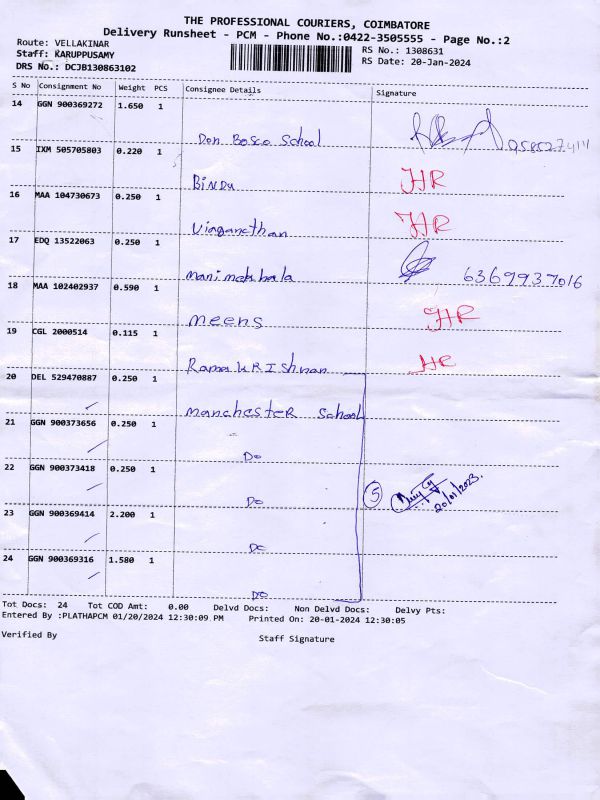 THE PROFESSIONAL COURIERS, COIMBATORE
Delivery Runsheet - PCM - Phone No.:0422-3505555 - Page No.:2
Route: VELLAKINAR
RS No.: 1308631
Staff: KARUPPUSAMY
RS Date: 20-Jan-2024
DRS No.: DCJB130863102
S No Consignment No Weight PCS Consignee Details Signature
14 GGN 900369272 1.650 1
Don Bosco School
15 IXM 505705803 0.220 1
Bindu HR
16 MAA 104730673 0.250 1
HR
17 EDQ 13522063 0.250 1
Manimekhala 6369937016
18 MAA 102402937 0.590 1
Meens HR
19 CGL 2000514 0.115 1
RamakRIshnan HR
20 DEL 529470887 0.250 1
ManchesteR School
21 GGN 900373656 0.250 1
Do
22 GGN 900373418 0.250 1
Do 5 20/01/2023.
23 GGN 900369414 2.200 1
Do
24 GGN 900369316 1.580 1
Do
Tot Docs: 24 Tot COD Amt: 0.00 Delvd Docs: Non Delvd Docs: Delvy Pts:
Entered By :PLATHAPCM 01/20/2024 12:30:09 PM Printed On: 20-01-2024 12:30:05
Verified By Staff Signature